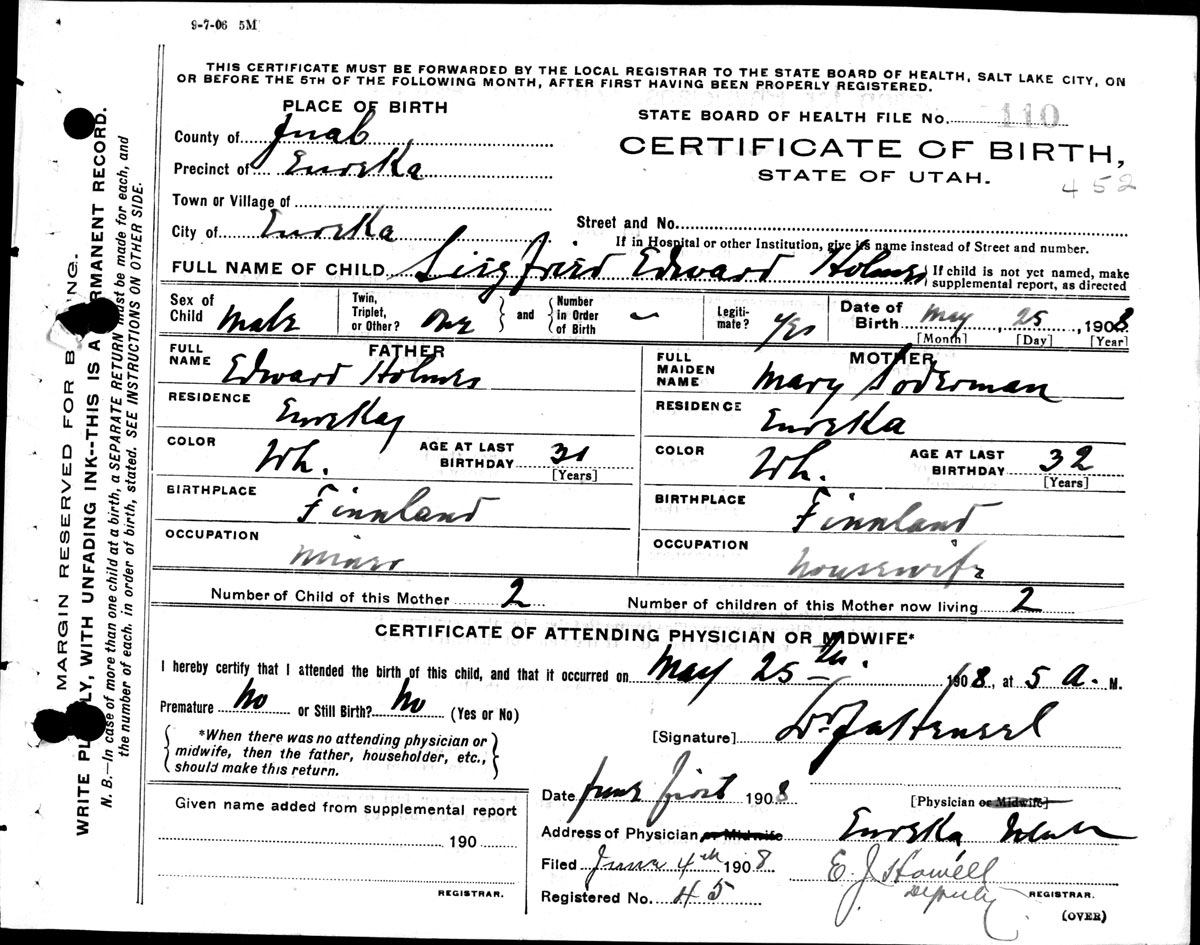 9-7-06 5M
THIS CERTIFICATE MUST BE FORWARDED BY THE LOCAL REGISTRAR TO THE STATE BOARD OF HEALTH, SALT LAKE CITY, ON
OR BEFORE THE 5TH OF THE FOLLOWING MONTH, AFTER FIRST HAVING BEEN PROPERLY REGISTERED.
PLACE OF BIRTH
County of Juab
Precinct of Eureka
Town or Village of
City of Eureka
STATE BOARD OF HEALTH FILE No. 110
CERTIFICATE OF BIRTH,
STATE OF UTAH.
452
Street and No.
If in Hospital or other Institution, give its name instead of Street and number.
FULL NAME OF CHILD Siegfried Edward Holmes
If child is not yet named, make
supplemental report, as directed
Sex of Child Male
Twin, Triplet, or Other? One
and
Number in Order of Birth –
Legiti-mate? Yes
Date of Birth May, 25, 1908
[Month] [Day] [Year]
FATHER
FULL NAME Edward Holmes
RESIDENCE Eureka
COLOR Wh.
AGE AT LAST BIRTHDAY 31
[Years]
BIRTHPLACE Finnland
OCCUPATION Miner
MOTHER
FULL MAIDEN NAME Mary Soderman
RESIDENCE Eureka
COLOR Wh.
AGE AT LAST BIRTHDAY 32
[Years]
BIRTHPLACE Finnland
OCCUPATION housewife
Number of Child of this Mother 2
Number of children of this Mother now living 2
CERTIFICATE OF ATTENDING PHYSICIAN OR MIDWIFE*
I hereby certify that I attended the birth of this child, and that it occurred on May 25th. 1908, at 5 A. M.
Premature No or Still Birth? No (Yes or No)
*When there was no attending physician or
midwife, then the father, householder, etc.,
should make this return.
[Signature] Dr Hensel
Date June first 1908
[Physician or Midwife]
Address of Physician or Midwife Eureka Utah
Given name added from supplemental report
190
REGISTRAR.
Filed June 4th 1908
E. J. Howell
Deputy REGISTRAR.
Registered No. 45
(OVER)
MARGIN RESERVED FOR B NG.
WRITE PL LY, WITH UNFADING INK--THIS IS A RMANENT RECORD.
N. B.—In case of more than one child at a birth, a SEPARATE RETURN must be made for each, and
the number of each, in order of birth, stated. SEE INSTRUCTIONS ON OTHER SIDE.